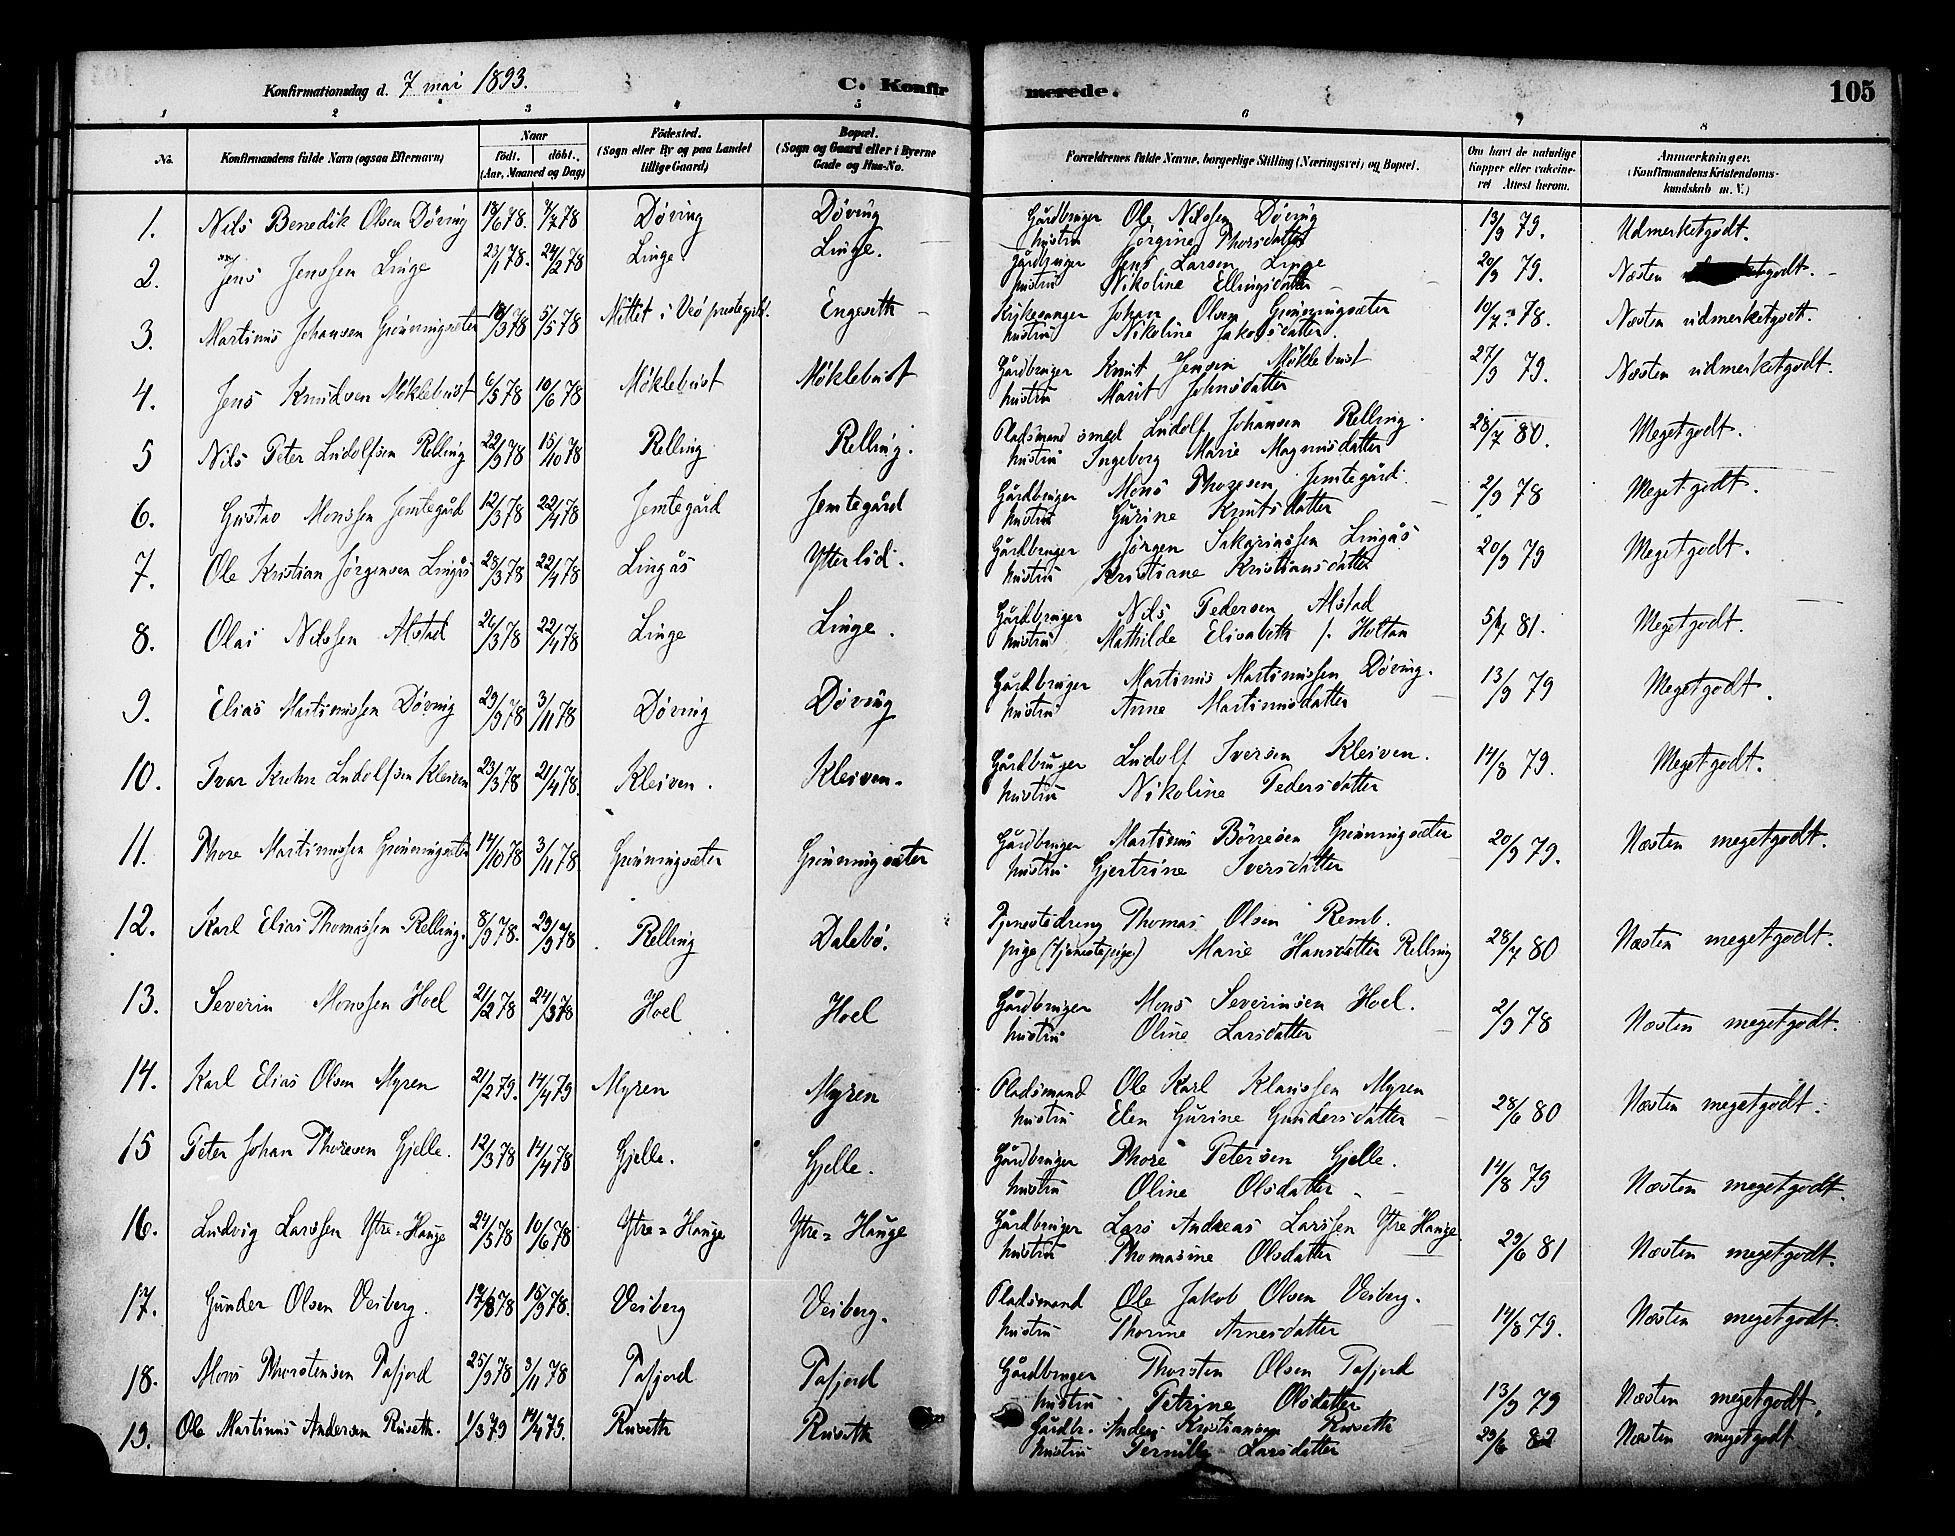 Konfirmationsdag d. 7 mai 1893. C. Konfirmerede. 105
1 2 3 4 5 6 7 8
No. Konfirmandens fulde Navn (ogsaa Efternavn) Naar födt. döbt. (Aar, Maaned og Dag) Födested. (Sogn eller By og paa Landet tillige Gaard) Bopæl. (Sogn og Gaard eller i Byerne Gade og Hus-No. Forældrenes fulde Navne, borgerlige Stilling (Næringsvei) og Bopæl. Om havt de naturlige Kopper eller vaccineret Attest herom. Anmærkninger. (Konfirmandens Kristendomskundskab m. V.)
1. Nils Benedik Olsen Döving 18/6 78. 7/7 78 Döving Döving Gårdbruger Ole Nilssen Döving 13/9 79. Udmerketgodt.
hustru Jørgine Thorsdatter
2. Jens Jenssen Linge 23/1 78. 24/2 78 Linge. Linge. Gårdbruger Jens Larsen Linge 20/9 79. Næsten godt.
hustru Nikoline Ellingsdatter
3. Martinus Johansen Grönningsæter 18/3 78 5/5 78 Mittet i Veö prestegjeld. Engeseth Kirkesanger Johan Olsen Grönningsæter 10/7 78. Næsten udmerketgodt.
hustru Nikoline Jakobsdatter.
4. Jens Knudsen Möklebust 6/5 78 10/6 78 Möklebust Möklebust Gårdbruger Knut Jensen Möklebust 27/9 79. Næsten udmerketgodt.
hustru Marit Johnsdatter
5 Nils Peter Ludolfsen Relling 22/9 78 15/10 78 Relling Relling. Pladsmand smed Ludolf Johansen Relling. 28/7 80. Megetgodt.
hustru Ingeborg Marie Magnusdatter
6. Gustav Monssen Jemtegård 12/3 78 22/4 78 Jemtegård Jemtegård Gårdbruger Mons Thoresen Jemtegård. 2/9 78 Megetgodt.
hustru Gurine Knutsdatter
7. Ole Kristian Jørgensen Lingås 23/3 78 22/4 78 Lingås Ytterlid. Gårdbruger Jørgen Sakariassen Lingås 20/9 79 Megetgodt.
hustru Kristiane Kristiansdatter
8. Olai Nilssen Alstad 26/3 78 22/4 78 Linge Linge. Gårdbruger Nils Pedersen Alstad 81. Megetgodt.
hustru Mathilde Elisabeth f. Holtan
9. Elias Martinussen Döving 29/9 78 3/11 78 Döving Döving Gårdbruger Martinus Martinussen Döving. 13/9 79 Megetgodt.
hustru Anne Martinusdatter
10. Ivar Krohn Ludolfsen Kleiven 23/3 78 21/4 78. Kleiven. Kleiven. Gårdbruger Ludolf Iversen Kleiven. 14/8 79. Megetgodt.
hustru Nikoline Pedersdatter
11. Thore Martinussen Grönningsæter 14/10 78 3/11 78 Grönningsæter Grönningsæter Gårdbruger Martinus Börresen Grönningsæter 20/9 79. Næsten megetgodt.
hustru Gjertrine Iversdatter
12. Karl Elias Thomassen Relling. 8/9 78. 29/9 78 Relling Dalebö. Tjenestedreng Thomas Olsen Remb. 28/7 80 Næsten megetgodt.
pige (tjenestepige) Marie Hansdatter Relling
13. Severin Monssen Hoel 21/2 78 24/3 78 Hoel Hoel Gårdbruger Mons Severinsen Hoel. 2/9 78 Næsten megetgodt.
hustru Oline Larsdatter
14. Karl Elias Olsen Myren 21/2 79. 14/4 79 Myren Myren Pladsmand Ole Karl Klaussen Myren 28/6 80 Næsten megetgodt.
hustru Elen Gurine Gundersdatter
15 Peter Johan Thoresen Gjelle. 12/3 78 14/4 78 Gjelle. Gjelle. Gårdbruger Thore Petersen Gjelle. 14/8 79 Næsten megetgodt.
hustru Oline Olsdatter
16. Ludvig Larssen Ytre-Hauge 24/5 78 10/6 78 Ytre-Hauge Ytre-Hauge Gårdbruger Lars Andreas Larssen Ytre Hauge 29/6 81 Næsten megetgodt.
hustru Thomasine Olsdatter
17. Gunder Olsen Veiberg. 78 15/9 78. Veiberg Veiberg. Pladsmand Ole Jakob Olsen Veiberg. 14/8 79. Næsten megetgodt.
hustru Thorine Arnesdatter
18. Mons Thorstensen Tafjord 25/9 78 3/11 78 Tafjord Tafjord Gårdbruger Thorsten Olsen Tafjord 13/9 79 Næsten megetgodt.
hustru Petrine Olsdatter
19. Ole Martinus Andersen Ruseth. 1/3 79 14/4 79. Ruseth Ruseth Gårdbr. Anders Kristiansen Ruseth 29/6 82 Næsten megetgodt
hustru Pernille Larsdatter